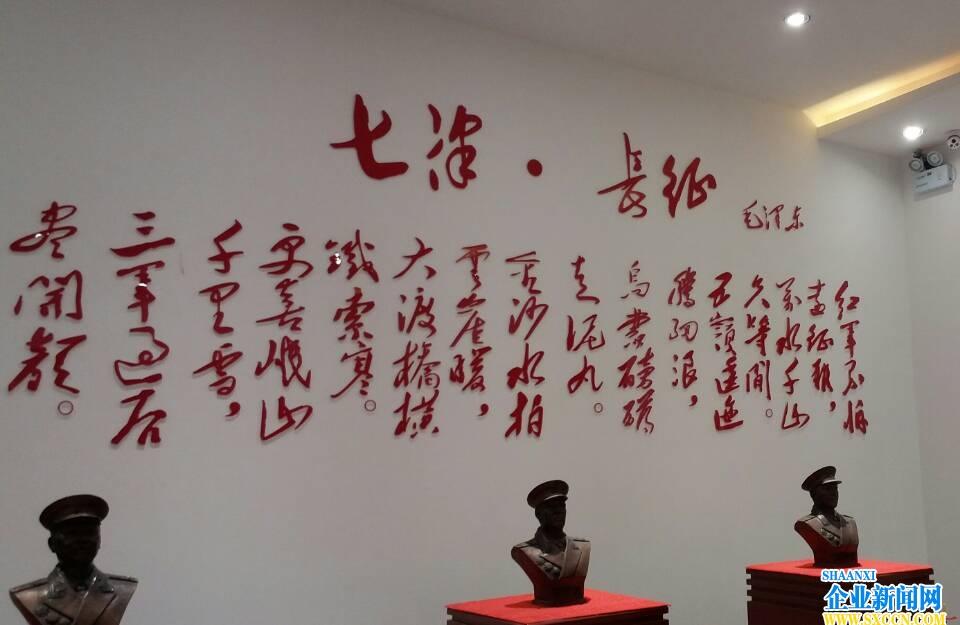 七律·長征
毛泽东
红军不怕
远征难，
万水千山
只等閒。
五嶺逶迤
騰细浪，
烏蒙磅礴
走泥丸。
金沙水拍
雲崖暖，
大渡橋横
鐵索寒。
更喜岷山
千里雪，
三军过后
尽開颜。
SHAANXI
企业新闻网
WWW.SXCCN.COM